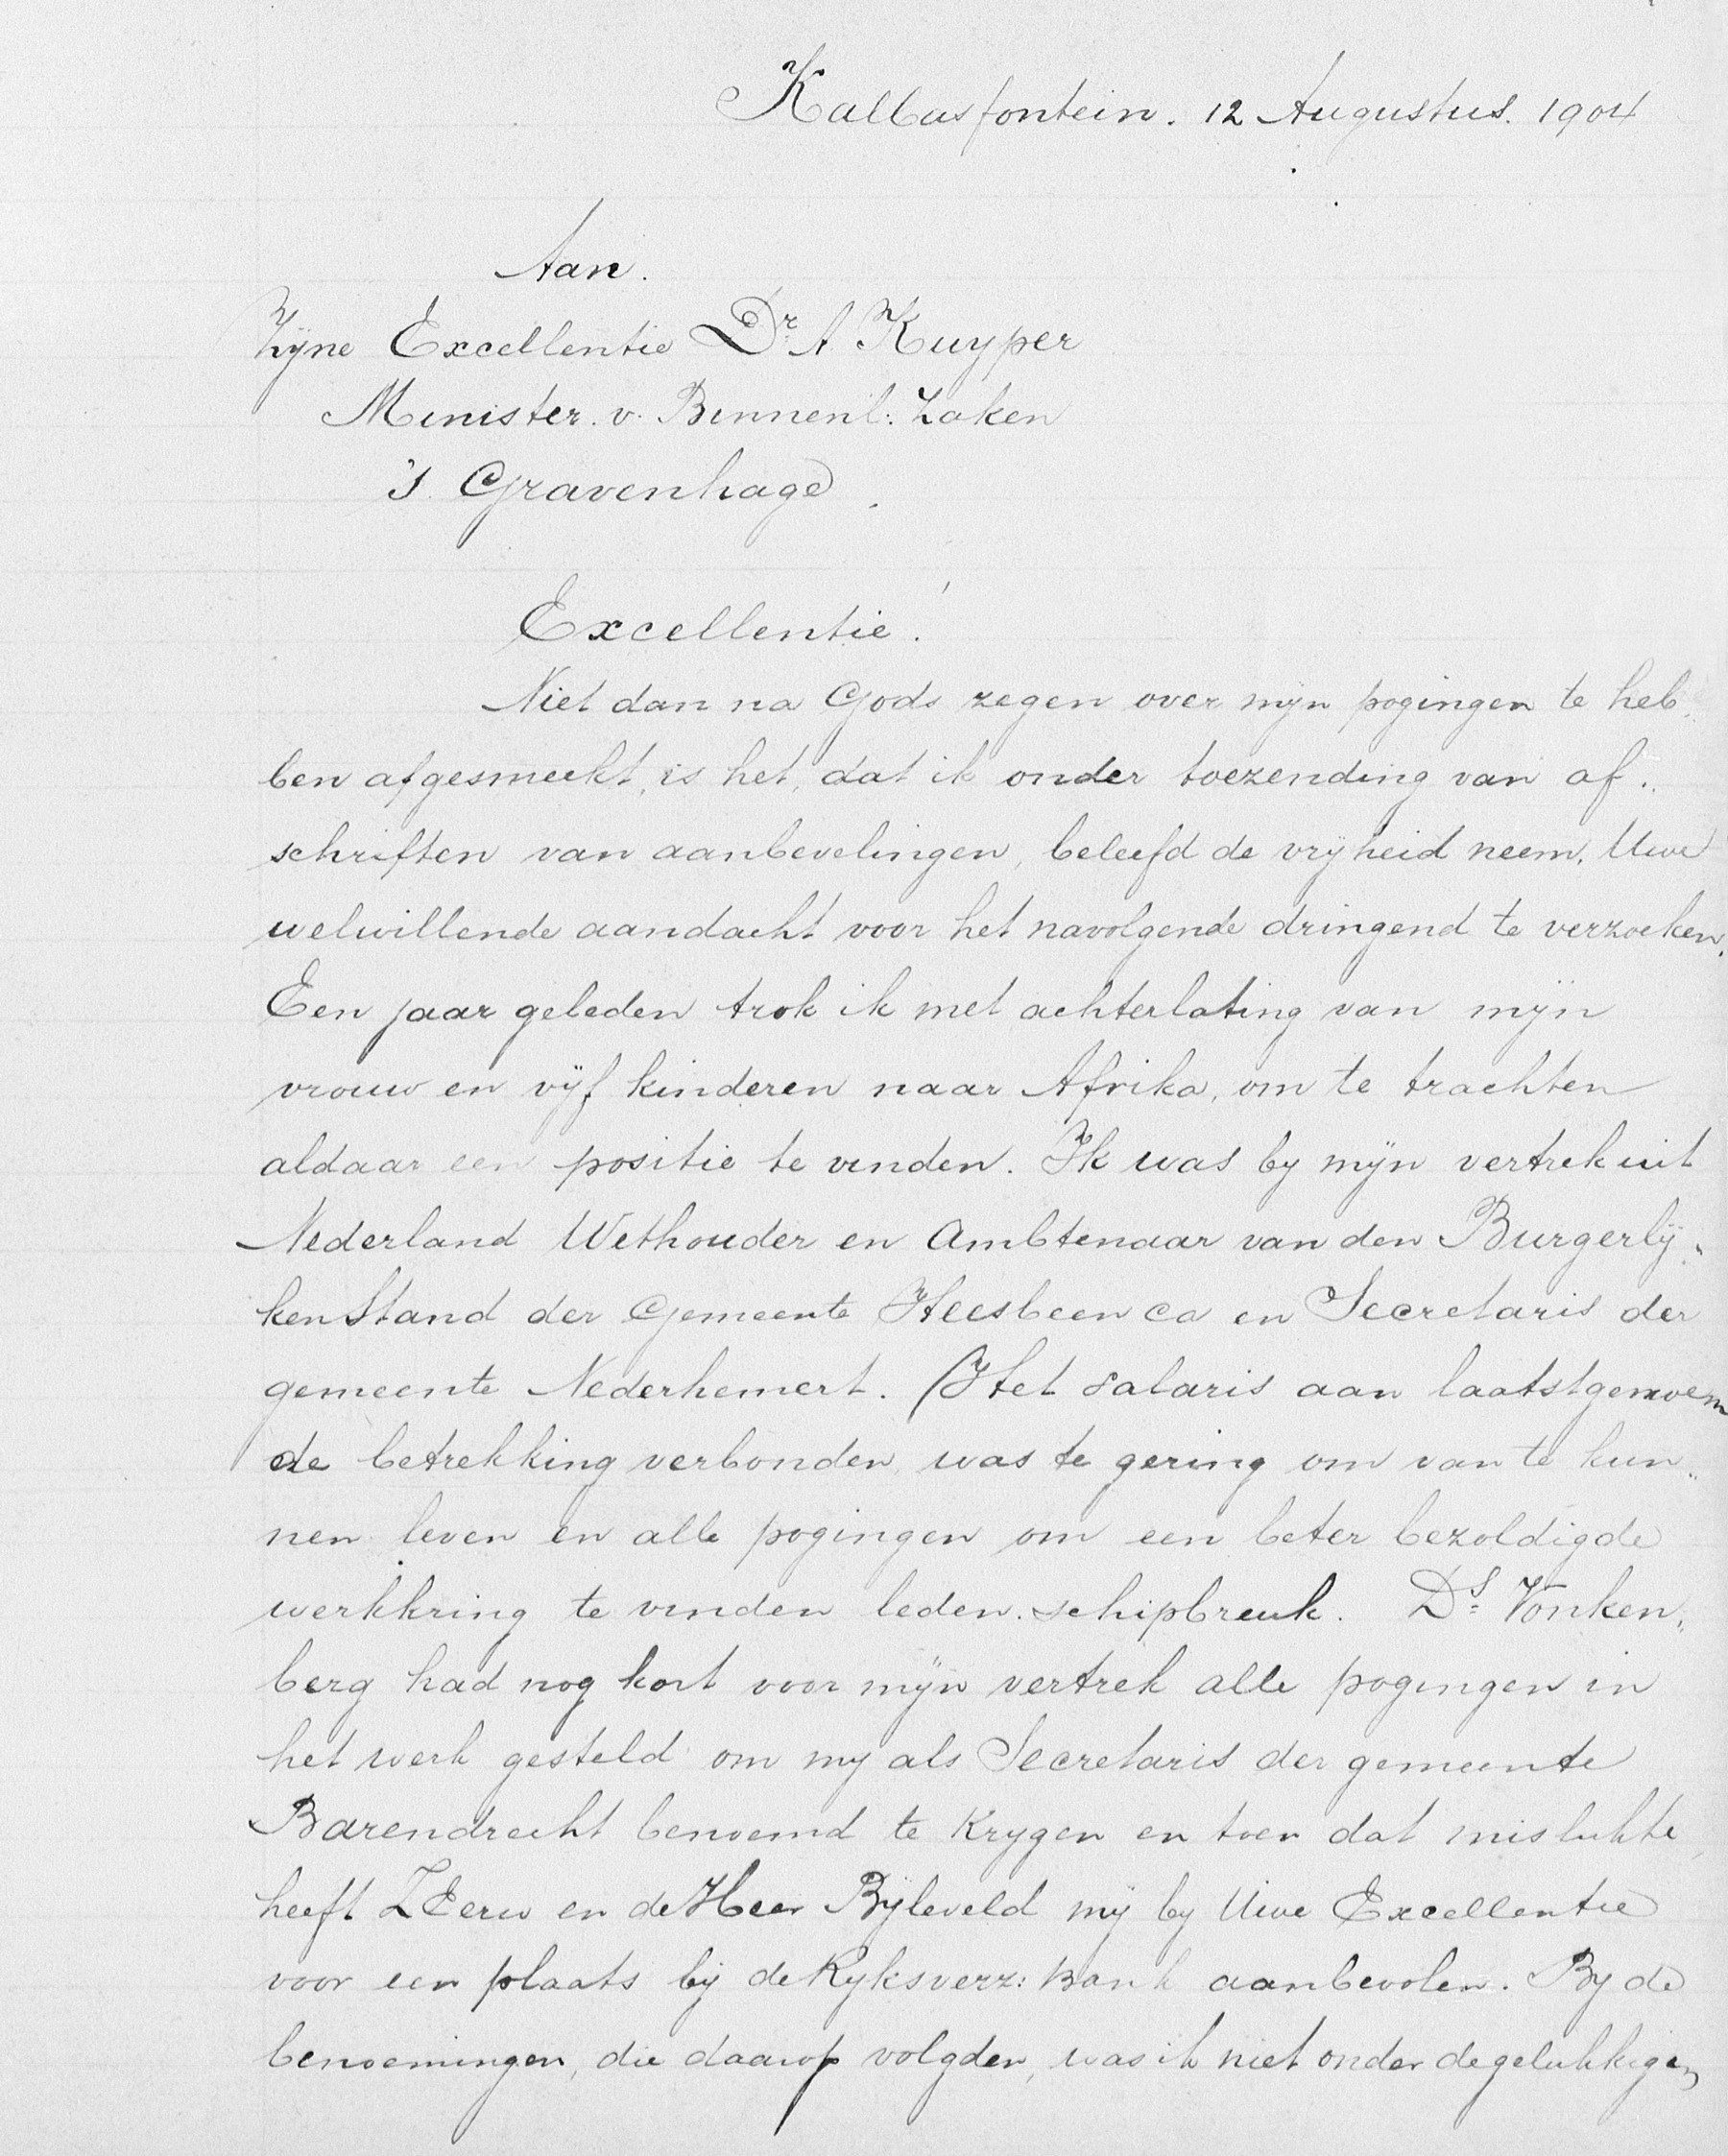 Kalbasfontein. 12 Augustus. 1904
Aan.
Zijne Excellentie Dr. A Kuyper
Minister. v. Binnenl: Zaken
's Gravenhage.
Excellentie!
Niet dan na Gods zegen over mijn pogingen te heb„
ben afgesmeekt, is het, dat ik onder toezending van af„
schriften van aanbevelingen, beleefd de vrijheid neem, Uwe
welwillende aandacht voor het navolgende dringend te verzoeken.
Een jaar geleden trok ik met achterlating van mijn
vrouw en vijf kinderen naar Afrika, om te trachten
aldaar een positie te vinden. Ik was by mijn vertrek uit
Nederland Wethouder en Ambtenaar van den Burgerlij„
ken Stand der Gemeente Heesbeen ca en Secretaris der
gemeente Nederhemert. (Het salaris aan laatstgenoem
de betrekking verbonden was te gering om van te kun„
nen leven en alle pogingen om een beter bezoldigde
werkkring te vinden leden schipbreuk. Ds. Vonken„
berg had nog kort voor mijn vertrek alle pogingen in
het werk gesteld om my als Secretaris der gemeente
Barendrecht benoemd te krygen en toen dat mislukte,
heeft ZEerw en de Heer Bijleveld mij by Uwe Excellentie
voor een plaats bij de Ryksverz: Bank aanbevolen. By de
benoemingen, die daarop volgden, was ik niet onder de gelukkigen